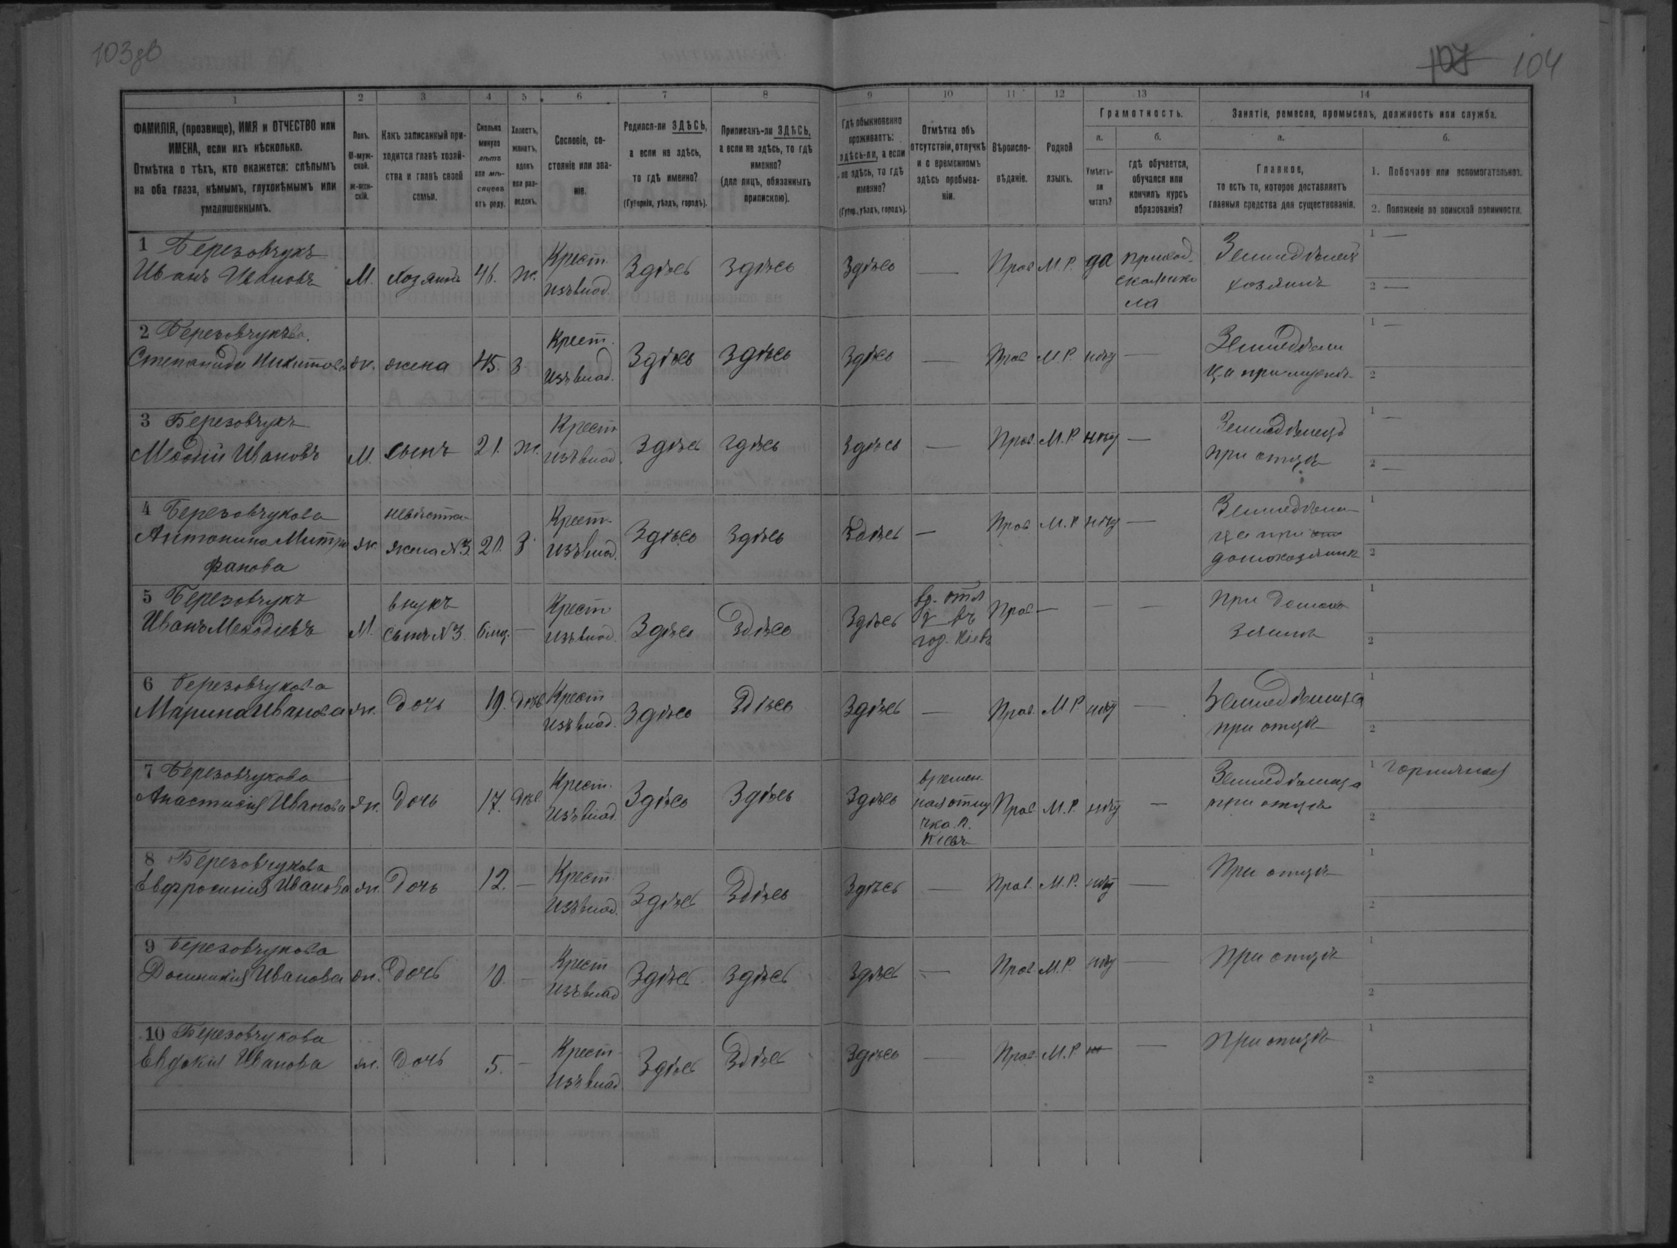 103об
107 104
1 2 3 4 5 6 7 8 9 10 11 12 13 14
ФАМИЛІЯ, (прозвище), ИМЯ и ОТЧЕСТВО или ИМЕНА, если ихъ нѣсколько.
Отмѣтка о тѣхъ, кто окажется: слѣпымъ на оба глаза, нѣмымъ, глухонѣмымъ или умалишеннымъ.
Полъ.
М-мужской.
Ж-женскій.
Какъ записанный приходится главѣ хозяйства и главѣ своей семьи.
Сколько минуло лѣтъ или мѣсяцевъ отъ роду.
Холостъ, женатъ, вдовъ или разведенъ.
Сословіе, состояніе или званіе.
Родился-ли ЗДѢСЬ, а если не здѣсь, то гдѣ именно?
(Губернія, уѣздъ, городъ).
Приписанъ-ли ЗДѢСЬ, а если не здѣсь, то гдѣ именно?
(для лицъ, обязанныхъ припискою).
Гдѣ обыкновенно проживаетъ: здѣсь-ли, а если не здѣсь, то гдѣ именно?
(Губер., уѣздъ, городъ).
Отмѣтка объ отсутствіи, отлучкѣ и о временномъ здѣсь пребываніи.
Вѣроисповѣданіе.
Родной языкъ.
Грамотность.
а.
Умѣетъ-ли читать?
б.
гдѣ обучается, обучался или кончилъ курсъ образованія?
Занятія, ремесло, промыселъ, должность или служба.
а.
Главное,
то есть то, которое доставляетъ главныя средства для существованія.
б.
1. Побочное или вспомогательное.
2. Положеніе по воинской повинности.
1 Березовчукъ
Иванъ Ивановъ М. хозяинъ 46. ж. Крест. изъ влад. Здѣсь здѣсь Здѣсь — Прав М.Р. да приход. ская шко ла Земледѣлецъ хозяинъ
1 —
2 —
2 Березовчукъва.
Степанида Никитова ж. жена 45 з Крест. изъ влад. Здѣсь здѣсь Здѣсь — Прав М.Р. нѣтъ — Земледѣли ца при мужѣ
1 —
2
3 Березовчукъ
Меѳодій Ивановъ М. сынъ 21. ж. Крест изъ влад. Здѣсь здѣсь Здѣсь — Прав М.Р. нѣтъ — Земледѣлецъ при отцѣ
1 —
2 —
4 Березовчукова
Антонина Митро
фанова ж. невѣстка жена №3 21. з Крест. изъ влад. Здѣсь Здѣсь Здѣсь — Прав М.Р нѣтъ — Земледѣли- ца при домохозяинѣ
1
2
5 Березовчукъ
Иванъ Меѳодіевъ М. внукъ сынъ №3. 6 мц. — Крест изъ влад. Здѣсь Здѣсь Здѣсь въ гор. Кіевѣ Прав — — — При домохо зяинѣ
1
2
6 Березовчукова
Марина Иванова ж. дочь 19. Дѣв Крест изъ влад. Здѣсь Здѣсь Здѣсь — Прав М.Р нѣтъ — Земледѣлица при отцѣ
1
2
7 Березовчукова
Анастасія Иванова ж. дочь 17. Дѣв Крест. изъ влад. Здѣсь Здѣсь Здѣсь времен. ная отлу чка. г. Кіевъ Прав М.Р. нѣтъ — Земледѣлица при отцѣ
1 горничная
2
8 Березовчукова
Евфросинія Иванова ж. Дочь 12. — Крест изъ влад. Здѣсь Здѣсь Здѣсь — Прав. М.Р. нѣтъ — При отцѣ
1
2
9 Березовчукова
Домникія Иванова ж. Дочь 10. — Крест изъ влад Здѣсь здѣсь Здѣсь — Прав М.Р. нѣтъ — При отцѣ
1
2
10 Березовчукова
Евдокія Иванова ж. дочь 5. — Крест. изъ влад. Здѣсь Здѣсь Здѣсь — Прав М.Р — При отцѣ
1
2